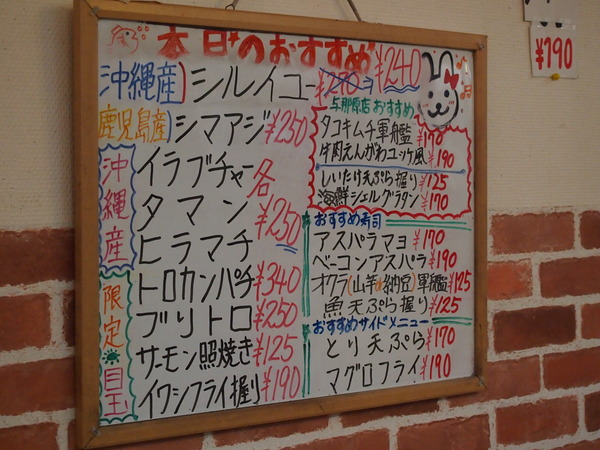 本日のおすすめ
沖縄産 シルイユー ¥290→¥240
鹿児島産 シマアジ ¥250
沖縄産
イラブチャー
タマン
ヒラマチ
各¥250
限定 目玉
トロカンパチ ¥340
ブリトロ ¥250
サーモン照焼き ¥125
イワシフライ握り ¥190
与那原店おすすめ
タコキムチ軍艦 ¥170
牛肉えんがわユッケ風 ¥190
しいたけ天ぷら握り ¥125
海鮮シェルグラタン ¥170
おすすめ寿司
アスパラマヨ ¥170
ベーコンアスパラ ¥190
オクラ(山芋or納豆)軍艦 ¥125
魚天ぷら握り ¥125
おすすめサイドメニュー
とり天ぷら ¥170
マグロフライ ¥190
¥190